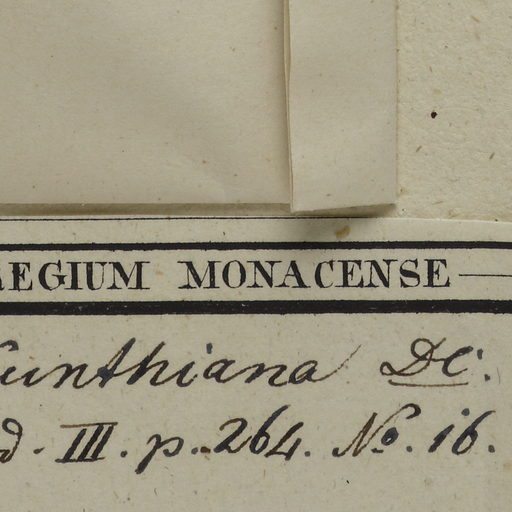 REGIUM MONACENSE
Kunthiana DC.
d. III. p. 264. No. 16.